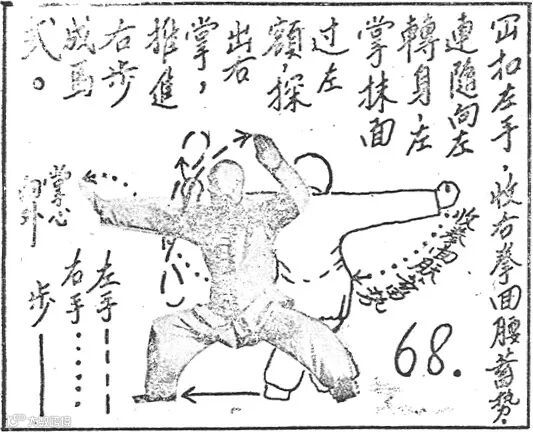 冚扣左手,收右拳回腰蓄势.
連隨向左
轉身,左
掌抹面
过左
額,探
出右
掌,
推進
右步
成馬
式。
掌心
向外
收拳回腰蓄势
左手
右手
步
68.